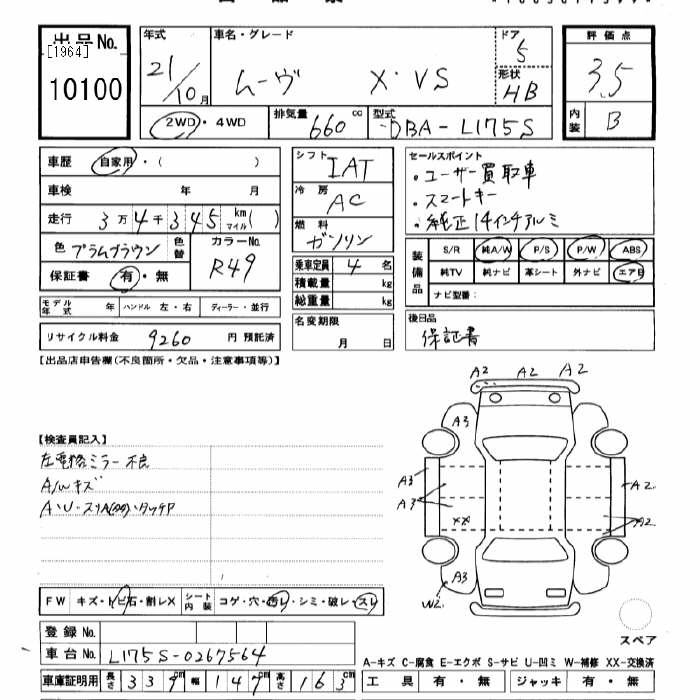 出品No.
[1964]
10100
年式
21/10月
車名・グレード
ムーヴ X・VS
ドア
5
形状
HB
評価点
3.5
内装
B
2WD・4WD
排気量
660 cc
型式
DBA-L175S
車歴
自家用・( )
車検 年 月
走行 3万4千345 km マイル( )
色 プラムブラウン
色替
カラーNo.
R49
保証書 有・無
モデル年式 年
ハンドル 左・右
ディーラー・並行
リサイクル料金 9260 円 預託済
シフト
IAT
冷房
AC
燃料
ガソリン
乗車定員 4 名
積載量 kg
総重量 kg
名変期限
月 日
セールスポイント
・ユーザー買取車
・スマートキー
・純正14インチアルミ
装備品
S/R 純A/W P/S P/W ABS
純TV 純ナビ 革シート 外ナビ エアB
ナビ型番:
後日品
保証書
【出品店申告欄(不良箇所・欠品・注意事項等)】
【検査員記入】
左電格ミラー不良
A/Wキズ
A2 A2 A2
A3
A3
A3
A2
A2
XX
A3
W2
スペア
FW キズ・トビ石・割レX
シート内装 コゲ・穴・汚レ・シミ・破レ・スレ
登録No.
車台No. L175S-0267564
車庫証明用 長さ 339cm 幅 147cm 高さ 163cm
A-キズ C-腐食 E-エクボ S-サビ U-凹ミ W-補修 XX-交換済
工具 有・無 ジャッキ 有・無